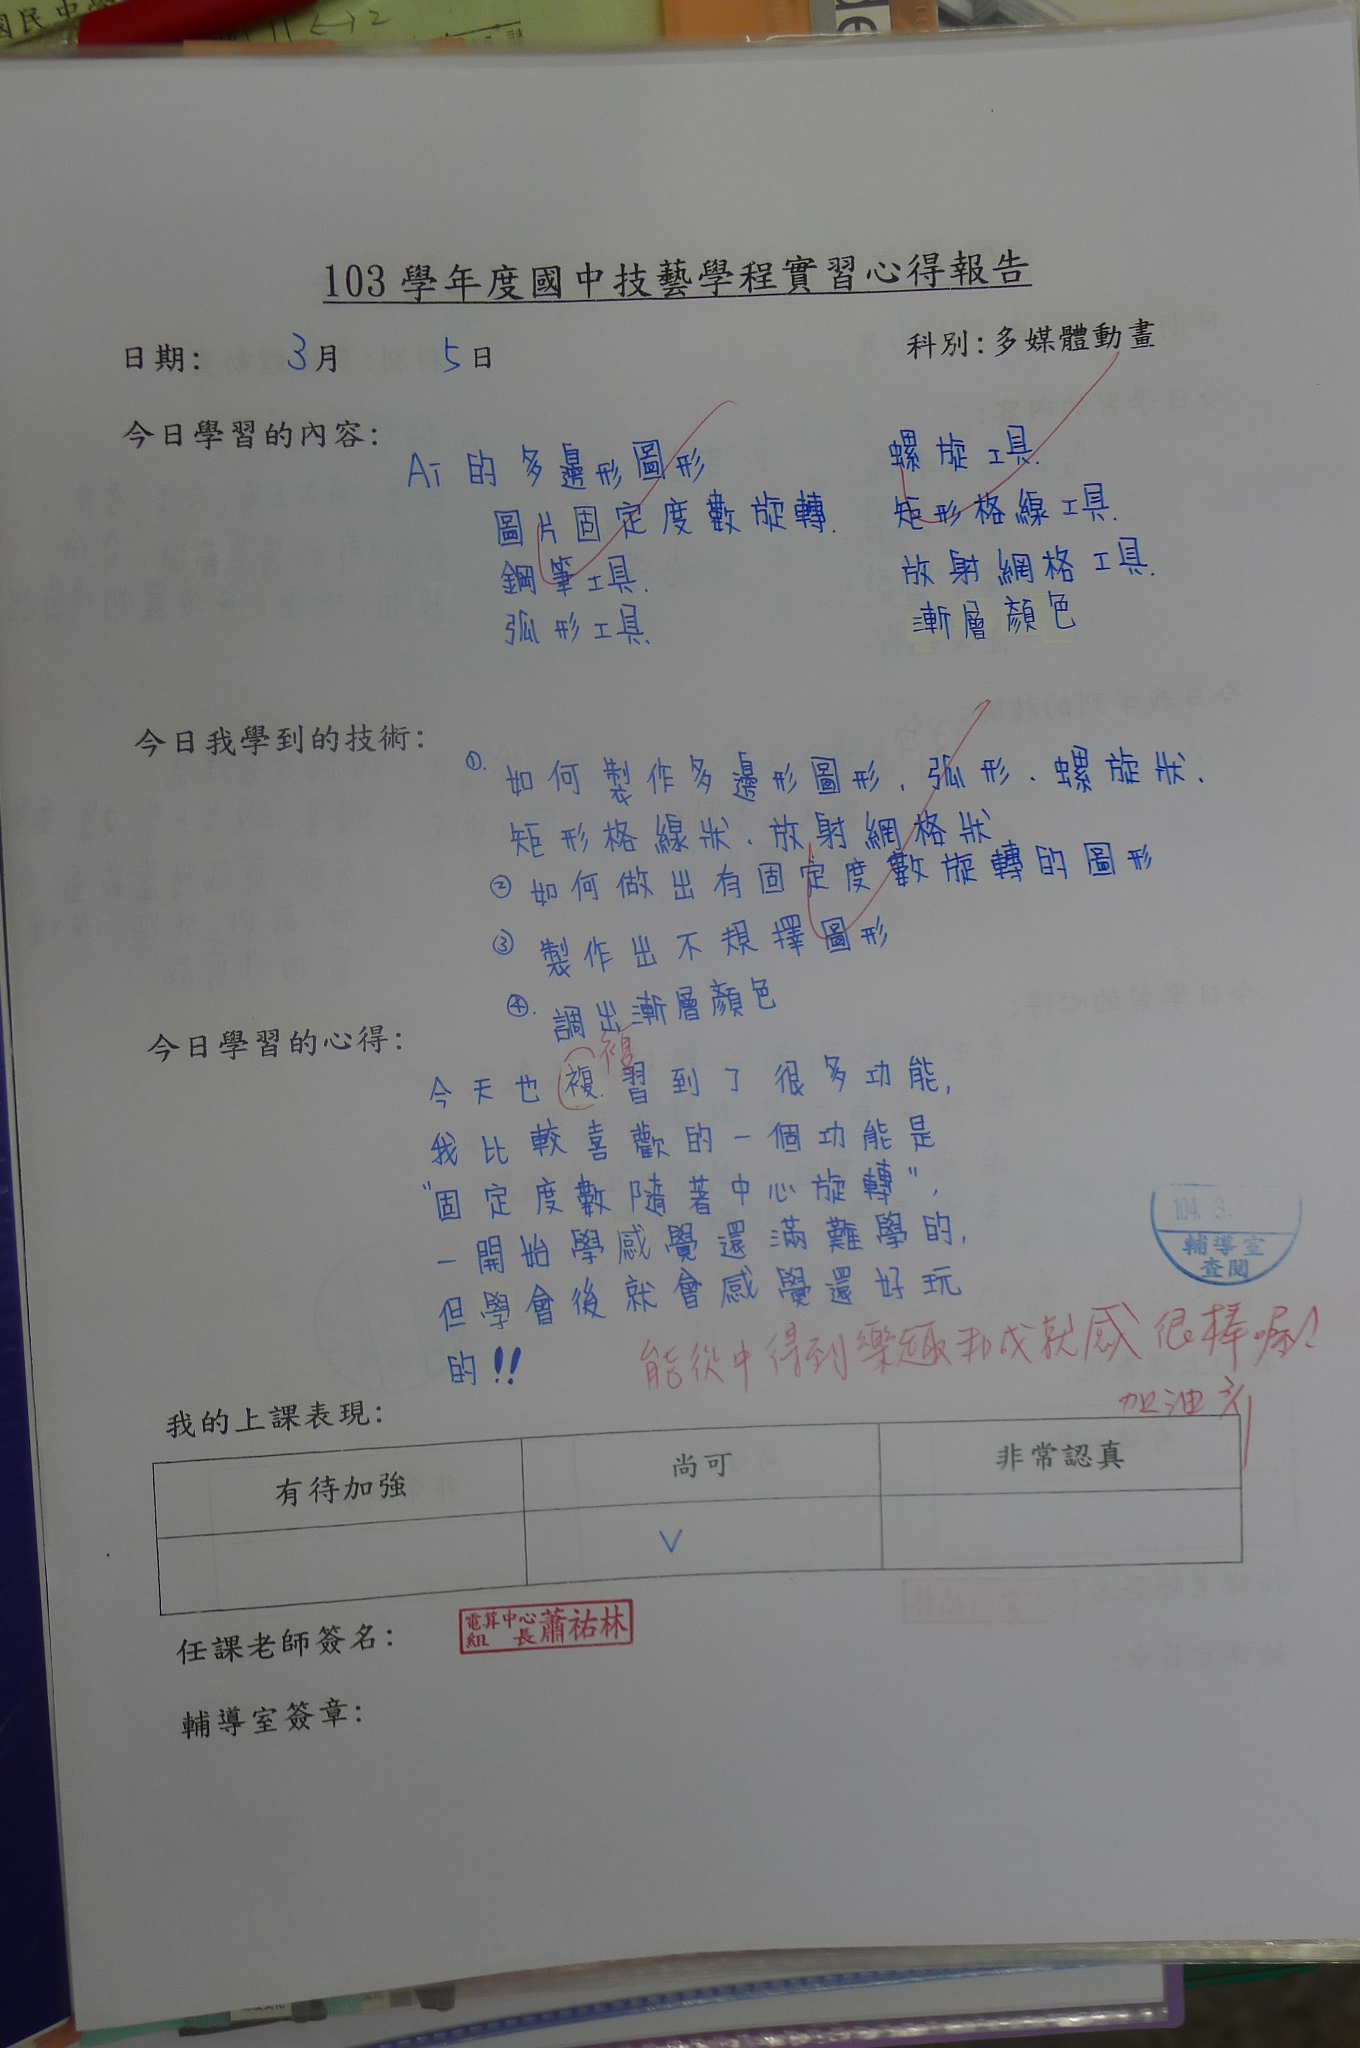 國民中學
103學年度國中技藝學程實習心得報告
日期: 3月 5日 科別:多媒體動畫
今日學習的內容:
Ai 的多邊形圖形 螺旋工具.
圖片固定度數旋轉. 矩形格線工具.
鋼筆工具. 放射網格工具.
弧形工具. 漸層顏色
今日我學到的技術:
①. 如何製作多邊形圖形、弧形、螺旋狀、
矩形格線狀、放射網格狀
② 如何做出有固定度數旋轉的圖形
③ 製作出不規擇圖形
④. 調出漸層顏色
今日學習的心得:
複
今天也複習到了很多功能,
我比較喜歡的一個功能是
"固定度數隨著中心旋轉",
一開始學感覺還滿難學的,
但學會後就會感覺還好玩
的!!
104. 3.
輔導室
查閱
能從中得到樂趣和成就感 很棒喔!
加油
我的上課表現:
有待加強 尚可 非常認真
V
任課老師簽名:
電算中心
組長 蕭祐林
輔導室簽章: